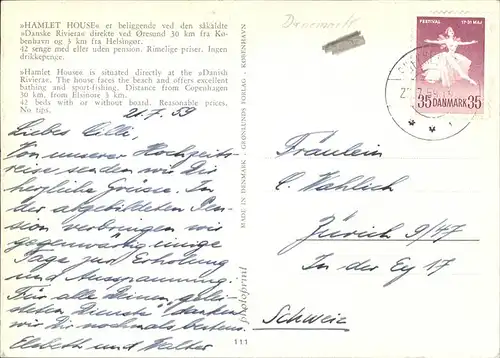 »HAMLET HOUSE« er beliggende ved den såkaldte
»Danske Riviera« direkte ved Øresund 30 km fra Kø-
benhavn og 3 km fra Helsingør.
42 senge med eller uden pension. Rimelige priser. Ingen
drikkepenge.
»Hamlet House« is situated directly at the »Danish
Riviera«. The house faces the beach and offers excellent
bathing and sport-fishing. Distance from Copenhagen
30 km, from Elsinore 3 km.
42 beds with or without board. Reasonable prices.
No tips.
21.7.59
Liebes Cilli,
Von unserer Hochzeits-
reise senden wir Dir
herzliche Grüsse. In
der abgebildeten Pen-
sion verbringen wir
gegenwärtig einige
Tage zur Erholung
und Ausspannung.
Für alle Deinen gelei-
steten Dienste danken
wir Dir nochmals bestens.
Elsbeth und Walter
MADE IN DENMARK - GRØNLUNDS FORLAG - KØBENHAVN
photoprint
111
Danemark
FESTIVAL 17-31 MAJ
35 DANMARK 35
Fräulein
C. Wahlich
Zürich 9/47
In der Ey 17
Schweiz